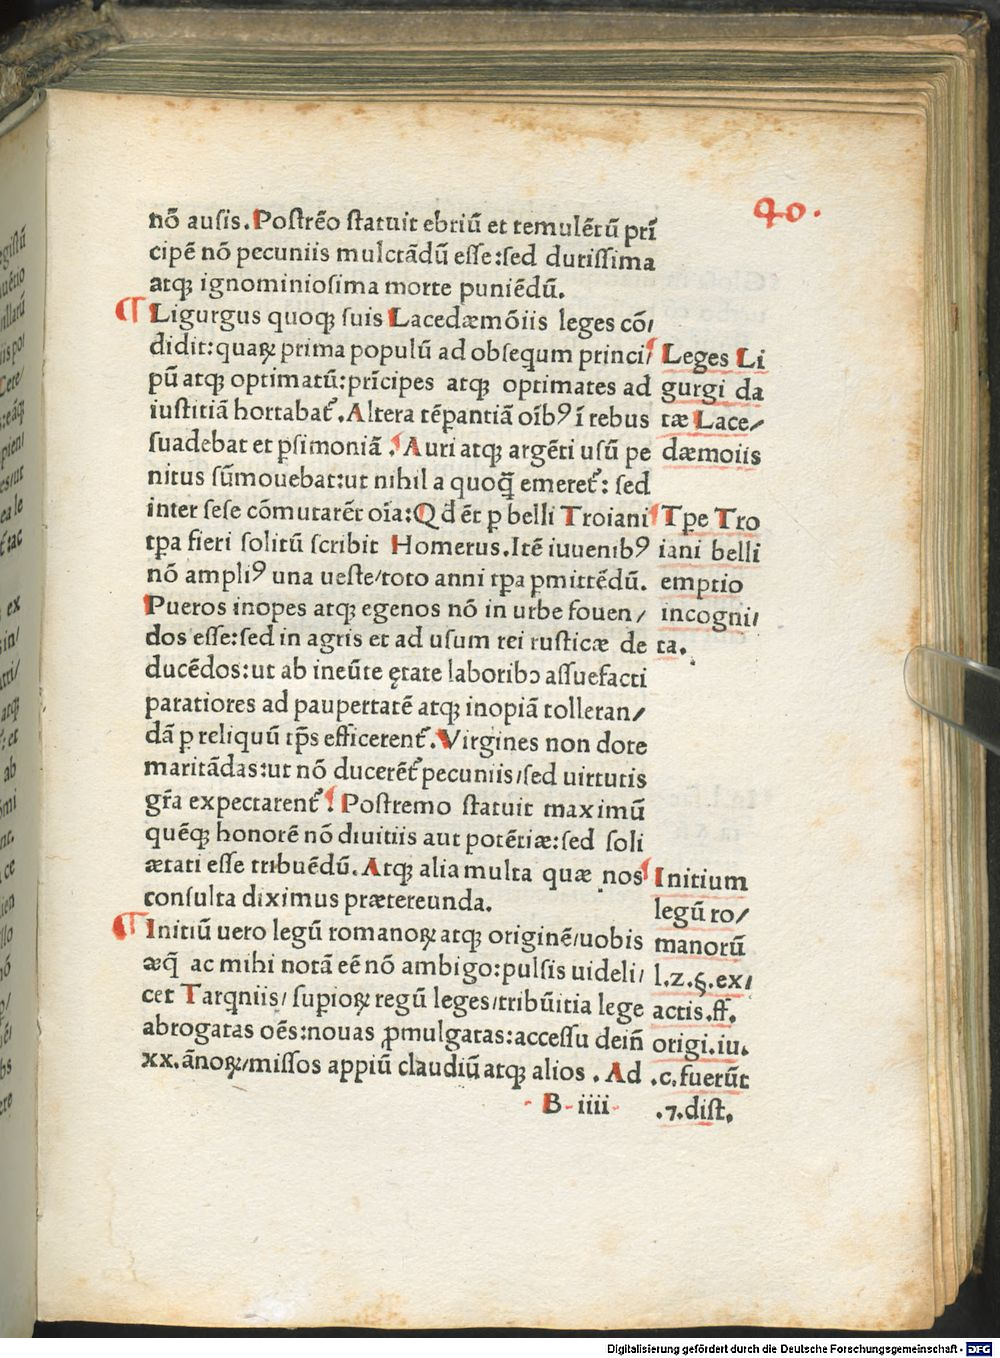 40.
nō ausis. Postrēo statuit ebriū et temulētū prī
cipē nō pecuniis mulctādū esse: sed durissima
atqꝫ ignominiosima morte puniēdū.
¶ Ligurgus quoqꝫ suis Lacedæmōiis leges cō/
didit: quaꝝ prima populū ad obsequm princi/
pū atqꝫ optimatū: prīcipes atqꝫ optimates ad
iustitiā hortabat᷑. Altera tēpantiā oībꝰ ī rebus
suadebat et ꝑsimoniā. Auri atqꝫ argēti usū pe
nitus sūmouebat: ut nihil a quoq̄ emeret᷑: sed
inter sese cōmutarēt oīa: Qd̄ ēt ꝑ belli Troiani
tꝑa fieri solitū scribit Homerus. Itē iuuenibꝰ
nō ampliꝰ una ueste/ toto anni tꝑa ꝑmittēdū.
Pueros inopes atqꝫ egenos nō in urbe fouen/
dos esse: sed in agris et ad usum rei rusticæ de
ducēdos: ut ab ineūte ętate laboribↄ assuefacti
paratiores ad paupertatē atqꝫ inopiā tolleran/
dā ꝑ reliquū tp̄s efficerent᷑. Virgines non dote
maritādas: ut nō ducerēt᷑ pecuniis/ sed uirtutis
gr̄a expectarent᷑. Postremo statuit maximū
quēqꝫ honorē nō diuitiis aut potētiæ: sed soli
ætati esse tribuēdū. Atqꝫ alia multa quæ nos
consulta diximus prætereunda.
¶ Initiū uero legū romanoꝝ atqꝫ originē/ uobis
æq̄ ac mihi notā eē nō ambigo: pulsis uideli/
cet Tarqniis/ supioꝝ regū leges/ tribūitia lege
abrogatas oēs: nouas ꝓmulgatas: accessu dein̄
xx. ānoꝝ/ missos appiū claudiū atqꝫ alios. Ad
B iiii
Leges Li
gurgi da
tæ Lace/
dæmoiis
Tꝑe Tro
iani belli
emptio
incogni/
ta.
Initium
legū ro/
manorū
l.z.§.ex/
actis.ff.
origi.iu.
.c.fuerūt
.7.dist.
Digitalisierung gefördert durch die Deutsche Forschungsgemeinschaft - DFG